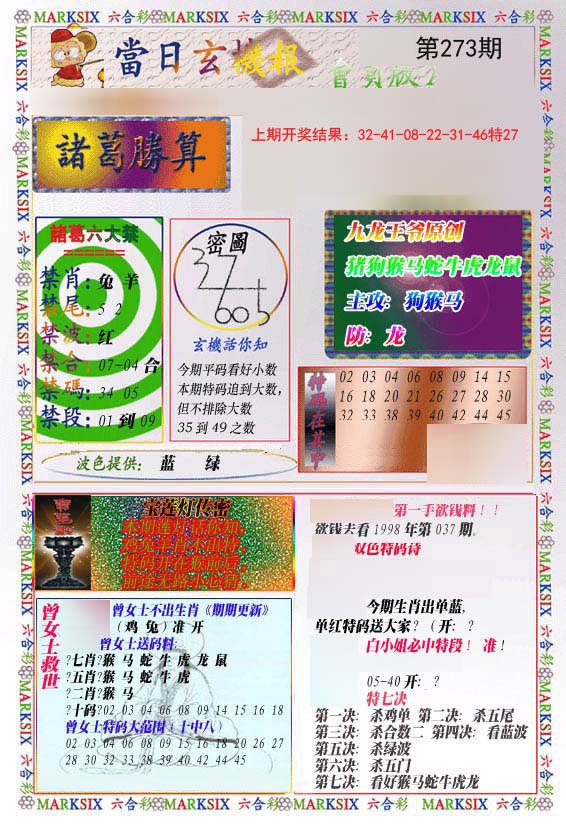 當日玄機报
第273期
諸葛勝算
上期开奖结果：32-41-08-22-31-46特27
諸葛六大禁
禁肖：兔 羊
禁尾：5 2
禁波：红
禁合：07-04 合
禁碼：34 05
禁段：01 到 09
密圖
玄機活你知
今期平码看好小数
本期特码追到大数，
但不排除大数
35 到 49 之数
九龙王爷原创
猪狗猴马蛇牛虎龙鼠
主攻：狗猴马
防：龙
特码在其中
02 03 04 06 08 09 14 15
16 18 20 21 26 27 28 30
32 33 38 39 40 42 44 45
波色提供：蓝 绿
宝莲灯传密
本期莲灯话你知，
曾女士救世
曾女士不出生肖《期期更新》
（鸡 兔）准 开
曾女士送码料：
?七肖?猴 马 蛇 牛 虎 龙 鼠
?五肖?猴 马 蛇 牛 虎
?二肖?猴 马
?十码?02 03 04 06 08 09 14 15 16 18
曾女士特码大范围（十中八）
02 03 04 06 08 09 15 16 18 20 26 27
28 30 32 33 38 39 40 42 44 45
第一手欲钱料！！
欲钱去看 1998 年第 037 期。
双色特码诗
今期生肖出单蓝，
单红特码送大家？（开：？
白小姐必中特段！ 准！
05-40 开：？
特七决
第一决：杀鸡单 第二决：杀五尾
第三决：杀合数二 第四决：看蓝波
第五决：杀绿波
第六决：杀五门
第七决：看好猴马蛇牛虎龙
MARKSIX 六合彩